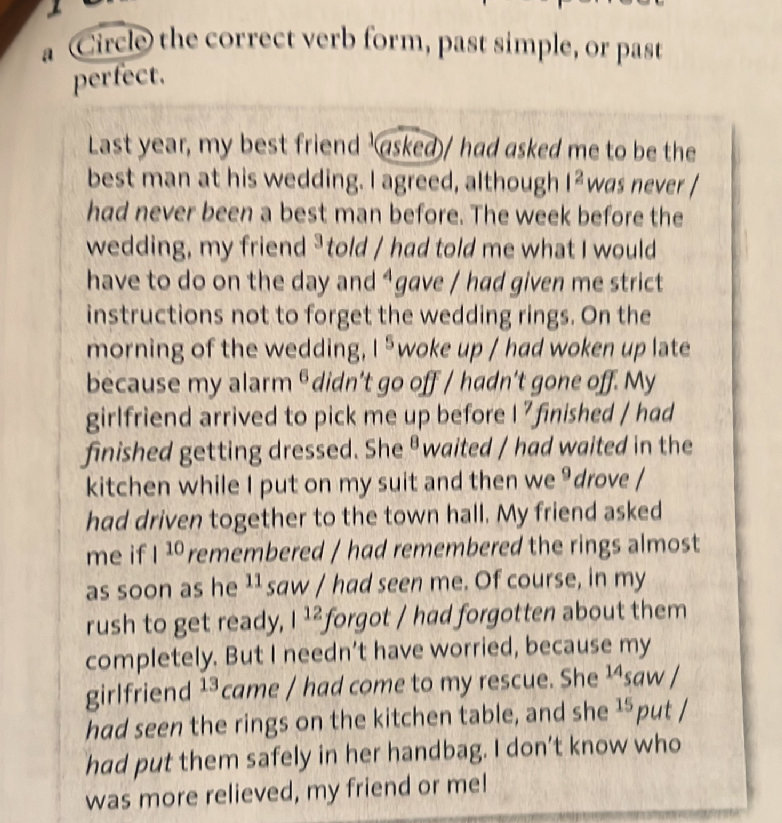 a Circle the correct verb form, past simple, or past
perfect.
Last year, my best friend ¹asked / had asked me to be the
best man at his wedding. I agreed, although I ²was never /
had never been a best man before. The week before the
wedding, my friend ³told / had told me what I would
have to do on the day and ⁴gave / had given me strict
instructions not to forget the wedding rings. On the
morning of the wedding, I ⁵woke up / had woken up late
because my alarm ⁶didn't go off / hadn't gone off. My
girlfriend arrived to pick me up before I ⁷finished / had
finished getting dressed. She ⁸waited / had waited in the
kitchen while I put on my suit and then we ⁹drove /
had driven together to the town hall. My friend asked
me if I ¹⁰remembered / had remembered the rings almost
as soon as he ¹¹saw / had seen me. Of course, in my
rush to get ready, I ¹²forgot / had forgotten about them
completely. But I needn't have worried, because my
girlfriend ¹³came / had come to my rescue. She ¹⁴saw /
had seen the rings on the kitchen table, and she ¹⁵put /
had put them safely in her handbag. I don't know who
was more relieved, my friend or me!